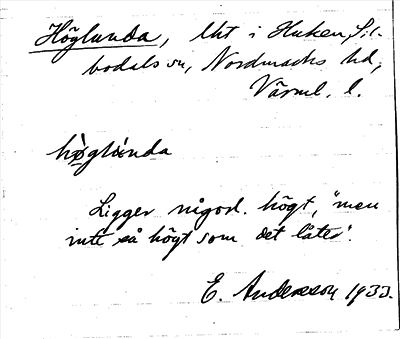 Höglunda, lht i Huken, Sil-
bodals sn, Nordmarks hd,
Värml. l.
hö̀glúnda
Ligger någorl. högt, "men
inte så högt som det låter".
E. Andersson 1933.